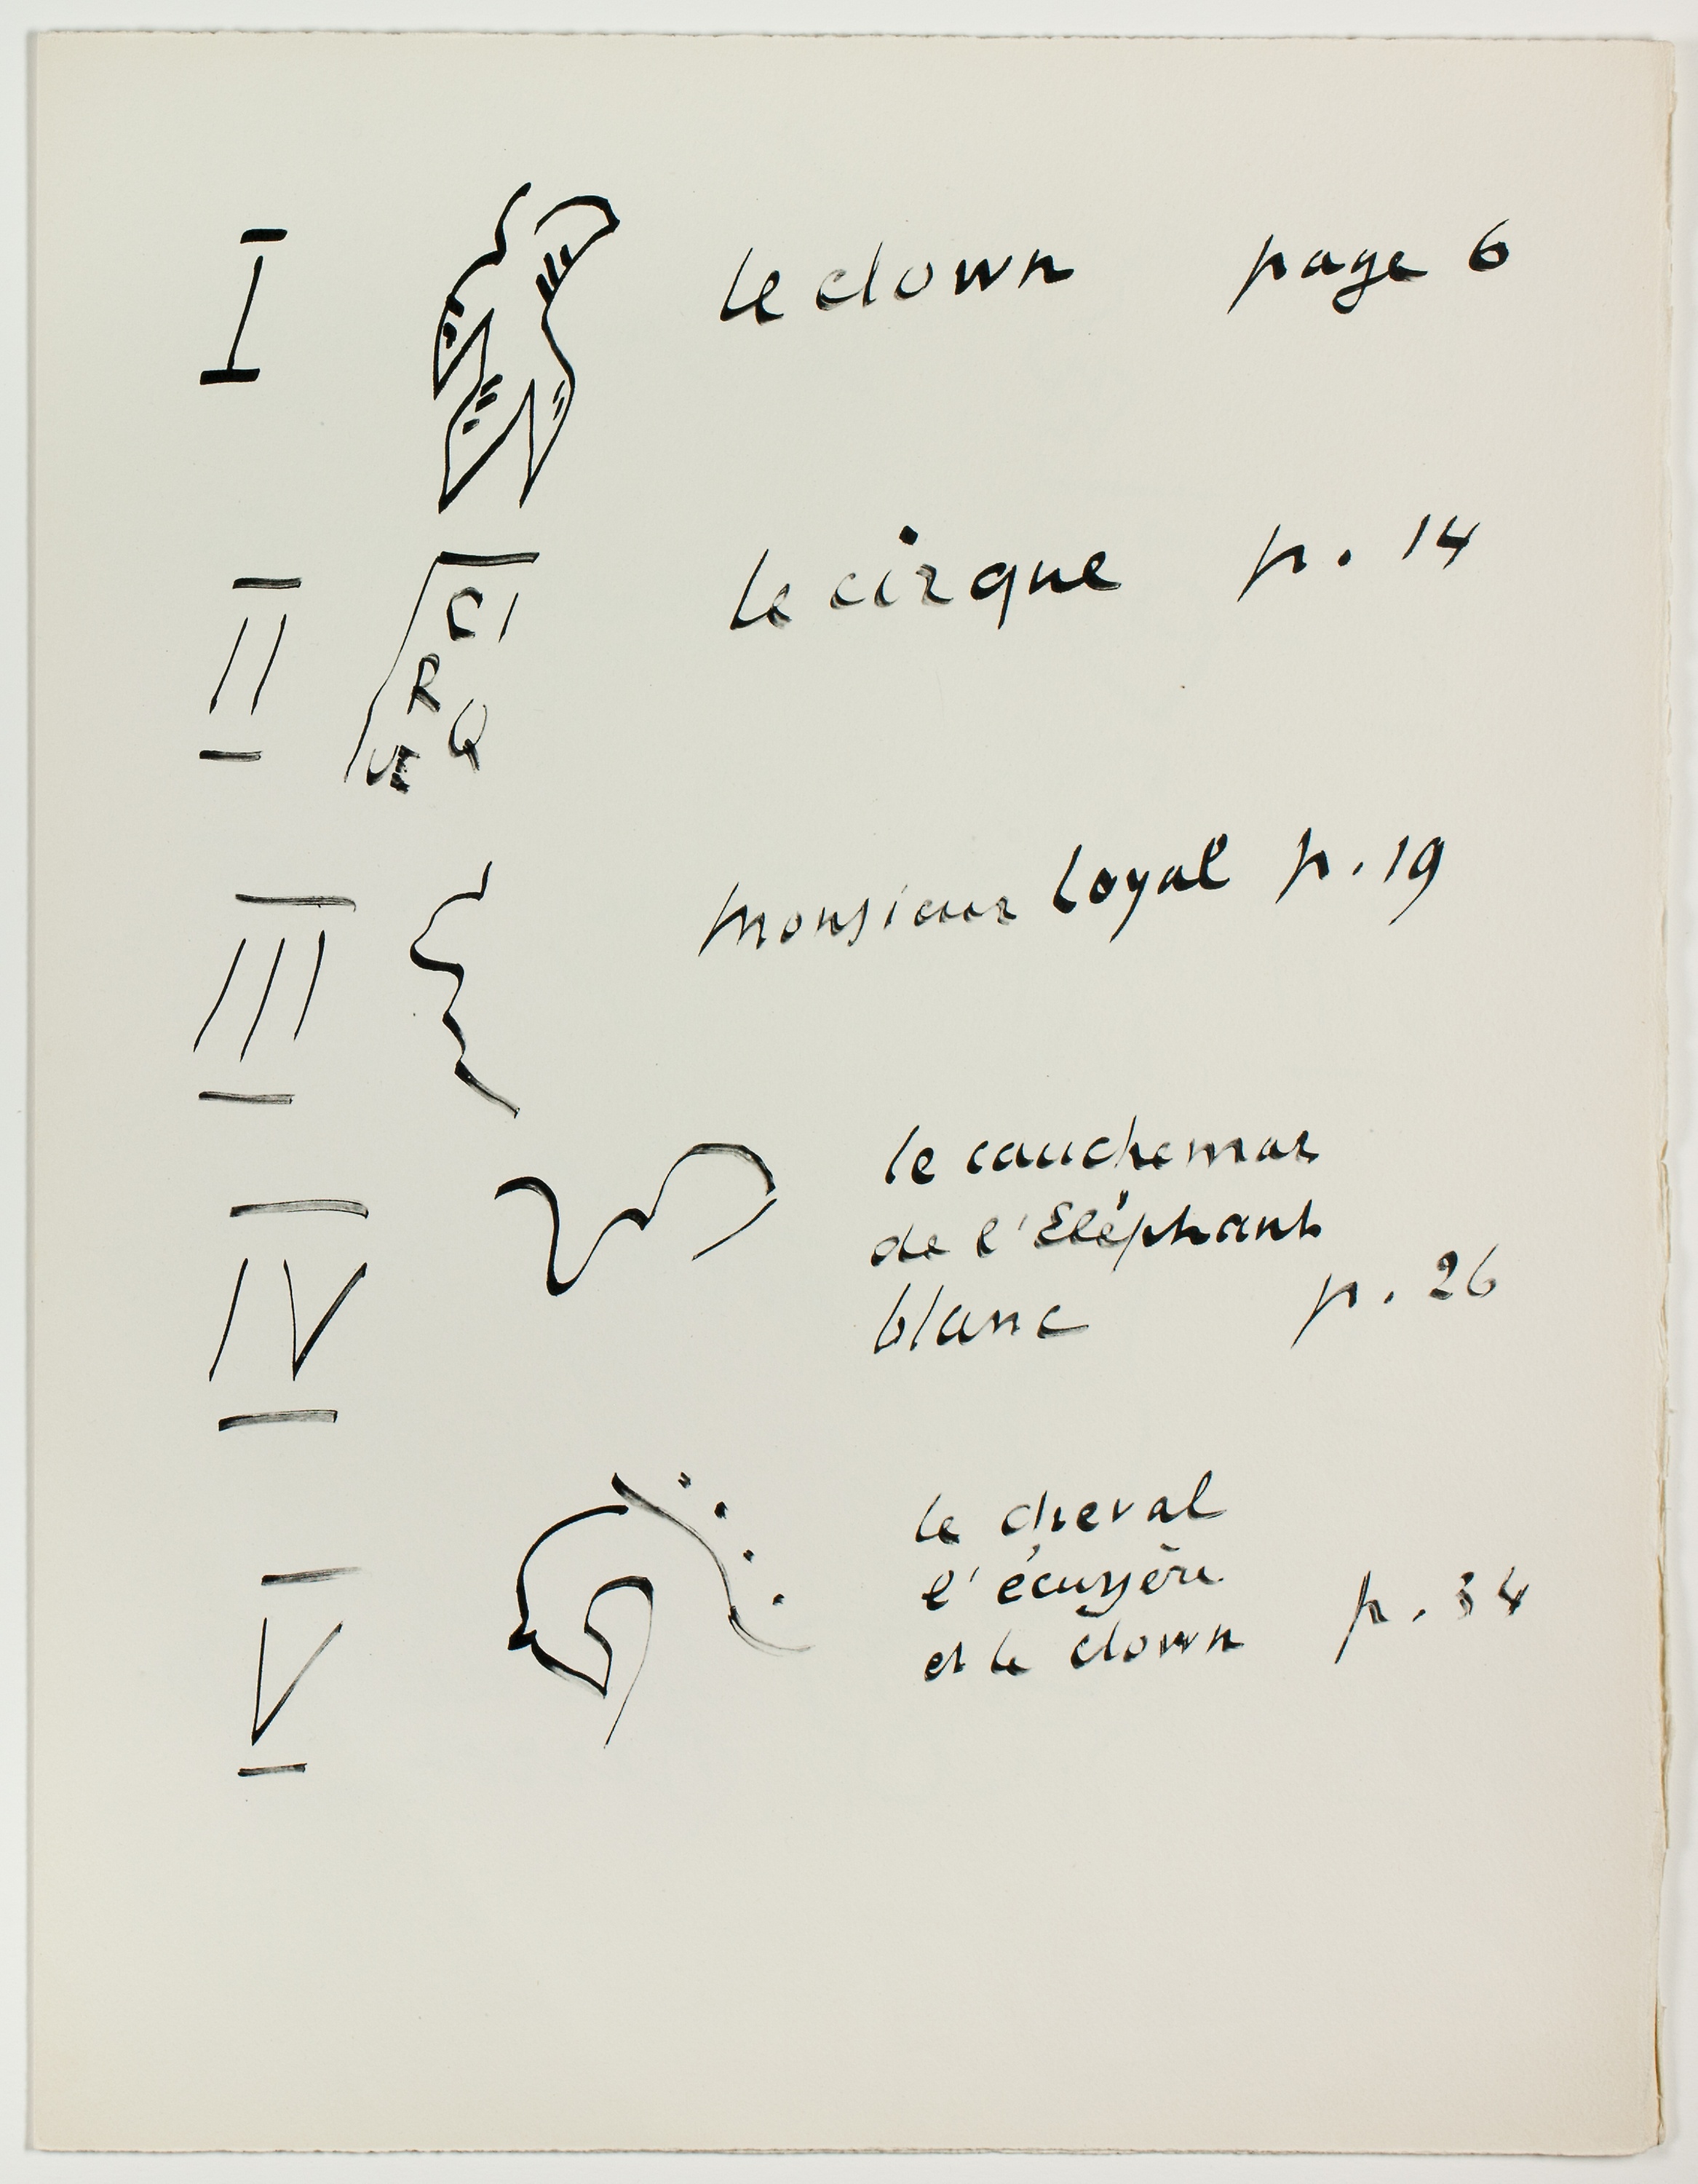 I le clown page 6
II CI
R
Q
le cirque p. 14
III monsieur Loyal p. 19
IV le cauchemar
de l'Eléphant
blanc p. 26
V le cheval
l'écuyère
et le clown p. 34